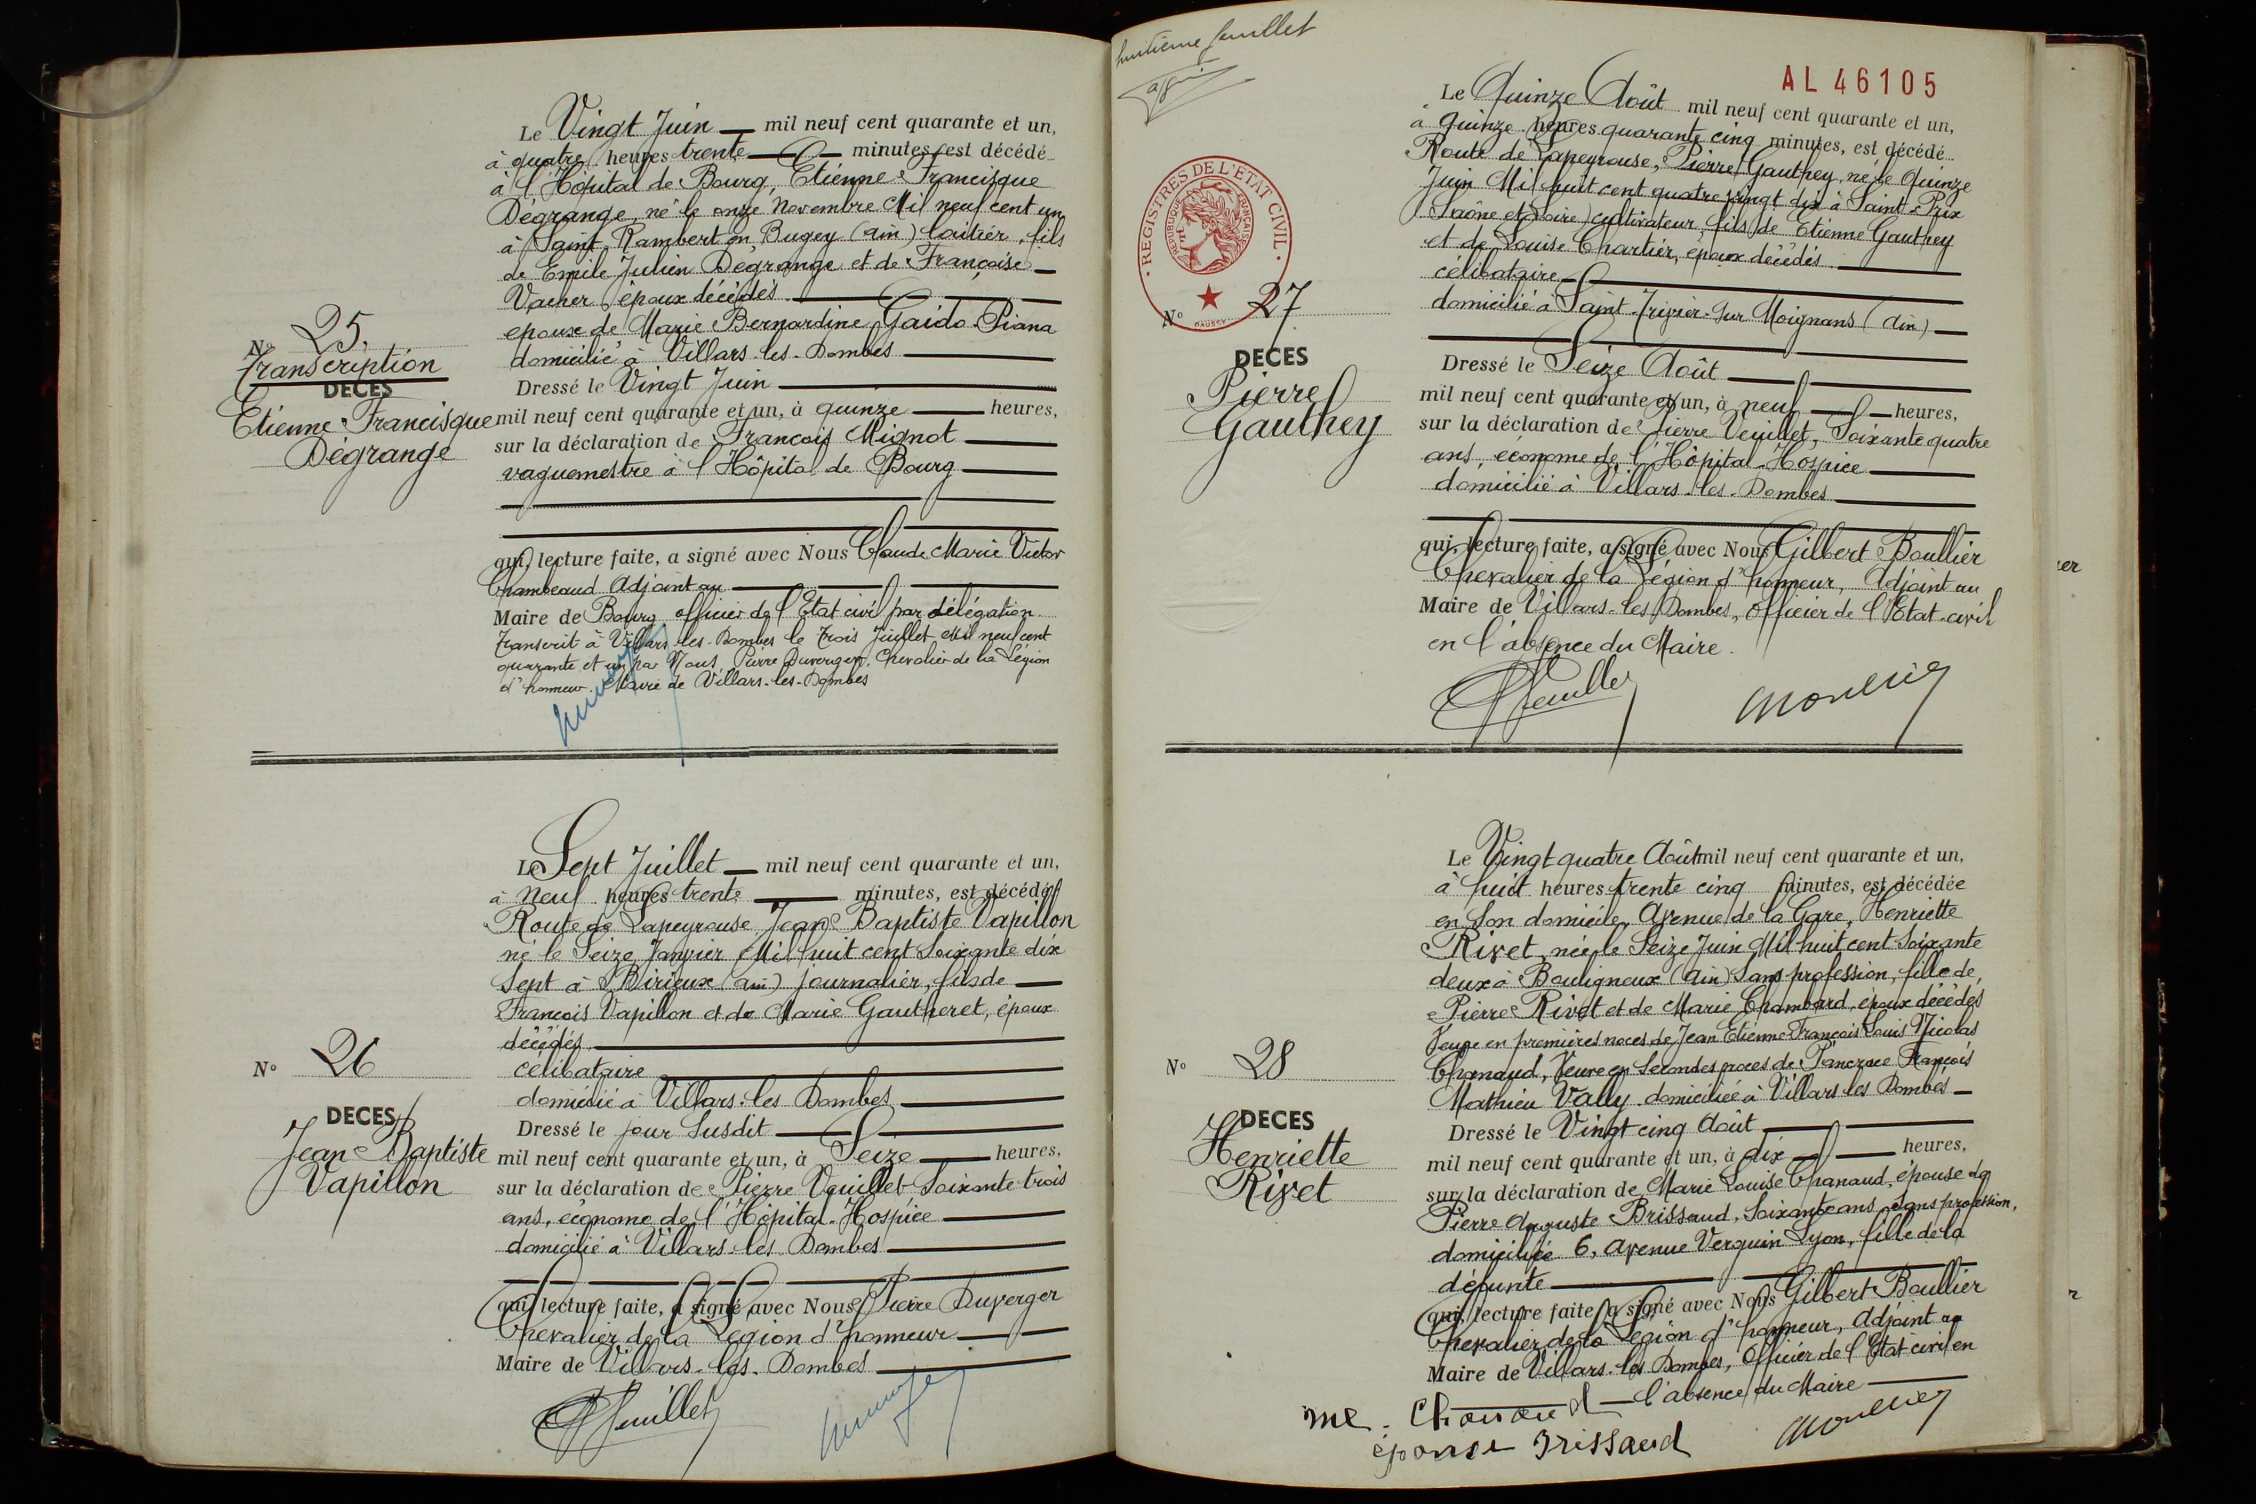 Le Vingt Juin mil neuf cent quarante et un,
à quatre heures trente minutes, est décédé
à l'Hôpital de Bourg, Etienne Francisque
Dégrange, né le onze Novembre Mil neuf cent un
à Saint Rambert en Bugey (ain) laitier, fils
de Emile Julien Dégrange et de Françoise
Vacher, époux décédés
epoux de Marie Bernardine Gaido Piana
domicilié à Villars-les-Dombes
N° 25.
Transcription
DECES
Etienne Francisque
Dégrange
Dressé le Vingt Juin
mil neuf cent quarante et un, à quinze heures,
sur la déclaration de François Mignot
vaguemestre à l'Hôpital de Bourg
qui, lecture faite, a signé avec Nous Claude Marie Victor
Chambeaud Adjoint au
Maire de Bourg officier de l'Etat civil par délégation
Transcrit à Villars-les-Dombes le trois Juillet, mil neuf cent
quarante et un par Nous, Pierre Duverger, Chevalier de la Légion
d'honneur. Maire de Villars-les-Dombes
Le Sept Juillet mil neuf cent quarante et un,
à Neuf heures trente minutes, est décédé
Route de Lapeyrouse, Jean Baptiste Vapillon
né le Seize Janvier Mil huit cent soixante dix
sept à Birieux (ain) journalier, fils de
François Vapillon et de Marie Gautheret, époux
décédés
célibataire
domicilié à Villars-les-Dombes
N° 26
DECES
Jean Baptiste
Vapillon
Dressé le jour susdit
mil neuf cent quarante et un, à Seize heures,
sur la déclaration de Pierre Veuillet Soixante trois
ans, économe de l'Hôpital-Hospice
domicilié à Villars-les-Dombes
qui, lecture faite, a signé avec Nous Pierre Duverger
Chevalier de la Légion d'honneur
Maire de Villars-les-Dombes
huitième feuillet
AL 46105
REGISTRES DE L'ETAT CIVIL
REPUBLIQUE FRANÇAISE
Le Quinze Août mil neuf cent quarante et un,
à Quinze heures quarante cinq minutes, est décédé
Route de Lapeyrouse, Pierre Gauthey, né le Quinze
Juin Mil huit cent quatre vingt dix à Saint-Prix
Saône et Loire) cultivateur, fils de Etienne Gauthey
et de Louise Chartier, époux décédés
célibataire
domicilié à Saint-Trivier-sur Moignans (Ain)
N° 27
DECES
Pierre
Gauthey
Dressé le Seize Août
mil neuf cent quarante et un, à neuf heures,
sur la déclaration de Pierre Veuillet, Soixante quatre
ans, économe de l'Hôpital-Hospice
domicilié à Villars-les-Dombes
qui, lecture faite, a signé avec Nous Gilbert Boullier
Chevalier de la Légion d'honneur, Adjoint au
Maire de Villars-les-Dombes, Officier de l'Etat-civil
en l'absence du Maire.
Le Vingt quatre Août mil neuf cent quarante et un,
à huit heures trente cinq minutes, est décédée
en son domicile, Avenue de la Gare, Henriette
Rivet, née le Seize Juin Mil huit cent soixante
deux à Bouligneux (Ain) Sans profession, fille de
Pierre Rivet et de Marie Chambard, époux décédés
Veuve en premières noces de Jean Etienne François Louis Nicolas
Chanaud, Veuve en Secondes noces de Pancrace François
Mathieu Vally domiciliée à Villars les Dombes
N° 28
DECES
Henriette
Rivet
Dressé le Vingt cinq Août
mil neuf cent quarante et un, à dix heures,
sur la déclaration de Marie Louise Chanaud, épouse de
Pierre Auguste Brissaud, Soixante ans, sans profession,
domiciliée 6, avenue Verguin Lyon, fille de la
défunte
qui, lecture faite, a signé avec Nous Gilbert Boullier
Chevalier de la Légion d'honneur, Adjoint au
Maire de Villars-les-Dombes, Officier de l'Etat civil en
l'absence du Maire
ml. Chanaud
épouse Brissaud